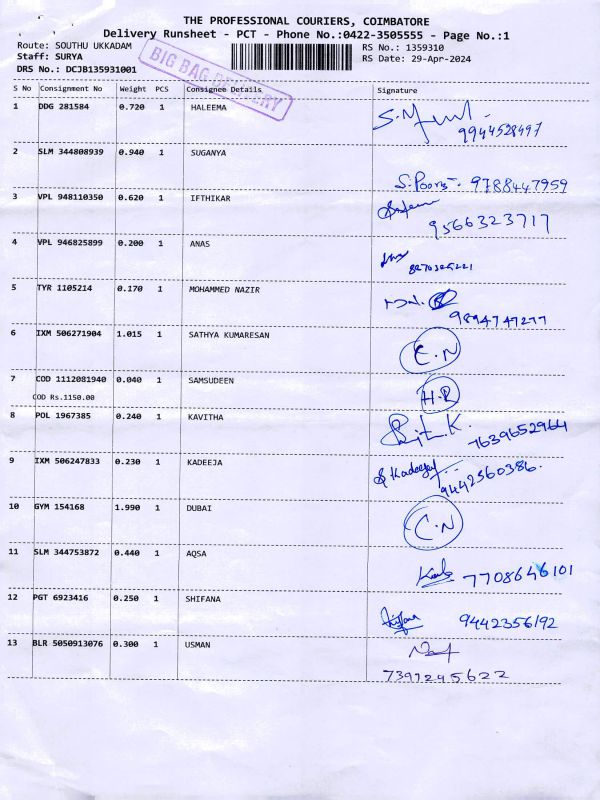 THE PROFESSIONAL COURIERS, COIMBATORE
Delivery Runsheet - PCT - Phone No.:0422-3505555 - Page No.:1
Route: SOUTHU UKKADAM
RS No.: 1359310
Staff: SURYA
RS Date: 29-Apr-2024
DRS No.: DCJB135931001
BIG BAG DELIVERY
S No Consignment No Weight PCS Consignee Details Signature
1 DDG 281584 0.720 1 HALEEMA
9944528497
2 SLM 344808939 0.940 1 SUGANYA
9788447959
3 VPL 948110350 0.620 1 IFTHIKAR
9566323717
4 VPL 946825899 0.200 1 ANAS
5 TYR 1105214 0.170 1 MOHAMMED NAZIR
9894747277
6 IXM 506271904 1.015 1 SATHYA KUMARESAN C.N
7 COD 1112081940 0.040 1 SAMSUDEEN H.R
COD Rs.1150.00
8 POL 1967385 0.240 1 KAVITHA
7639652964
9 IXM 506247833 0.230 1 KADEEJA
9442560386.
10 GYM 154168 1.990 1 DUBAI C.N
11 SLM 344753872 0.440 1 AQSA
7708646101
12 PGT 6923416 0.250 1 SHIFANA
9442356192
13 BLR 5050913076 0.300 1 USMAN
7391295622